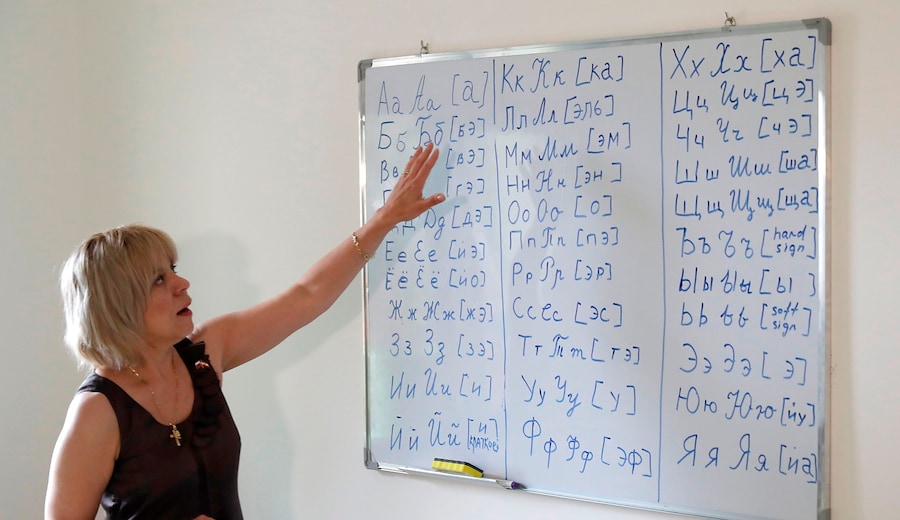 Аа Аа [а]
Бб Бб [бэ]
Вв [вэ]
[гэ]
Дд Дд [дэ]
Ее Ее [йэ]
Ёё Ёё [йо]
Жж Жж [жэ]
Зз Зз [зэ]
Ии Ии [и]
Йй Йй [и
краткое]
Кк Кк [ка]
Лл Лл [эль]
Мм Мм [эм]
Нн Нн [эн]
Оо Оо [о]
Пп Пп [пэ]
Рр Рр [эр]
Сс Сс [эс]
Тт Тт [тэ]
Уу Уу [у]
Фф Фф [эф]
Хх Хх [ха]
Цц Цц [цэ]
Чч Чч [чэ]
Шш Шш [ша]
Щщ Щщ [ща]
Ъъ Ъъ [hard
sign]
Ыы Ыы [ы]
Ьь Ьь [soft
sign]
Ээ Ээ [э]
Юю Юю [йу]
Яя Яя [йа]